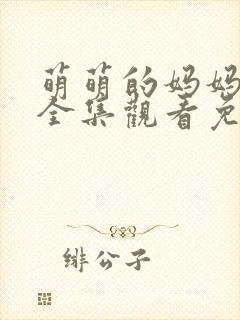 萌萌的妈妈
全集觀看免
绯公子